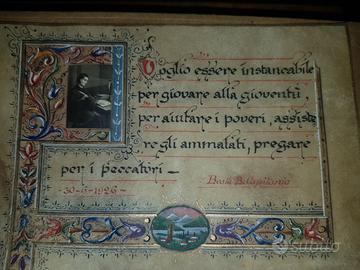 Voglio essere instancabile
per giovare alla gioventù,
per aiutare i poveri, assiste
re gli ammalati, pregare
per i peccatori —
30-5-1926 - Beata B. Capitanio
subito